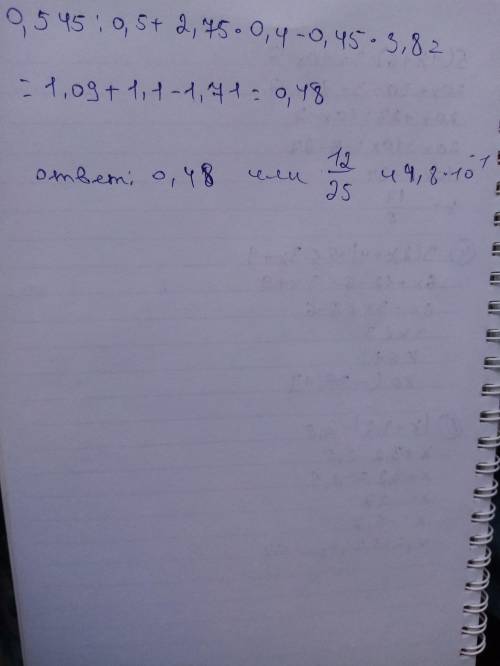 0,545:0,5+2,75·0,4-0,45·3,8=
=1,09+1,1-1,71=0,48
ответ: 0,48 или 12/25 и 4,8·10⁻¹